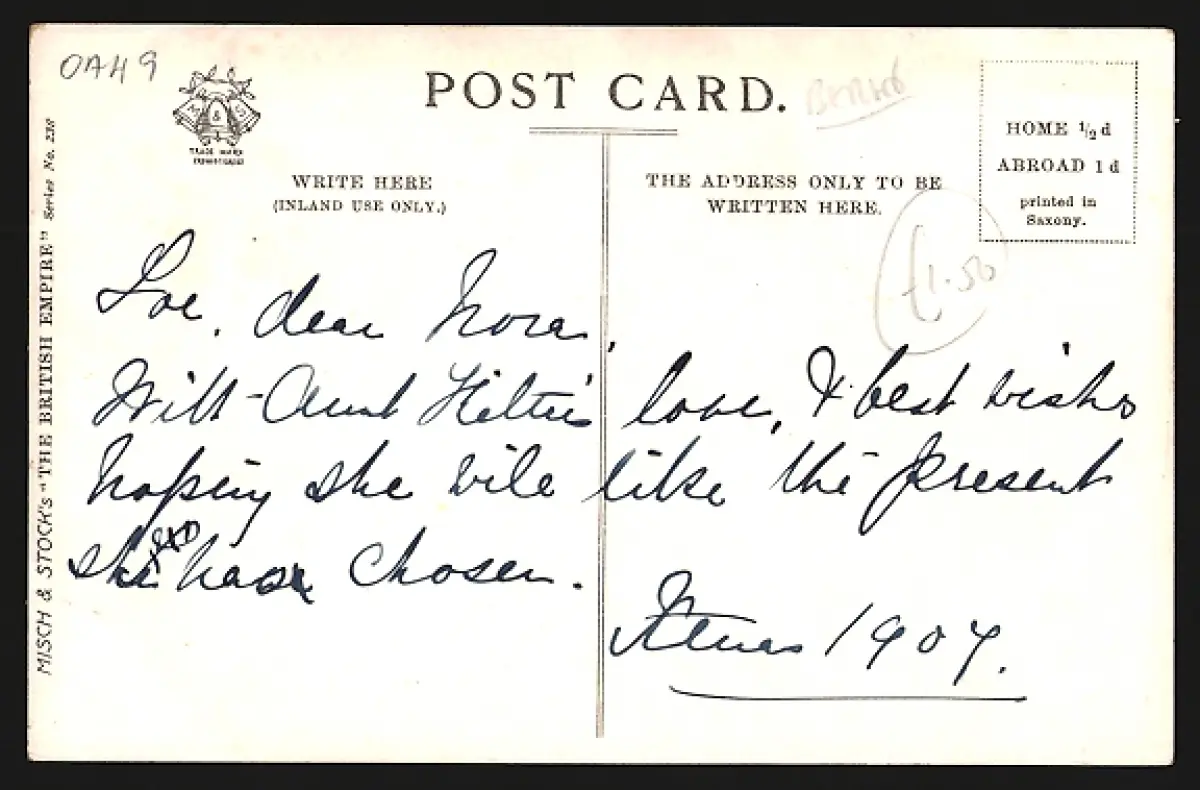 OA49
POST CARD.
TRADE MARK
WRITE HERE
(INLAND USE ONLY.)
THE ADDRESS ONLY TO BE
WRITTEN HERE.
HOME ½d
ABROAD 1d
printed in
Saxony.
£1.50
MISCH & STOCK's "THE BRITISH EMPIRE" Series No. 238
For dear Nora,
With Aunt love, & best wishes
hoping she will like the present
she has chosen.
Xmas 1907.